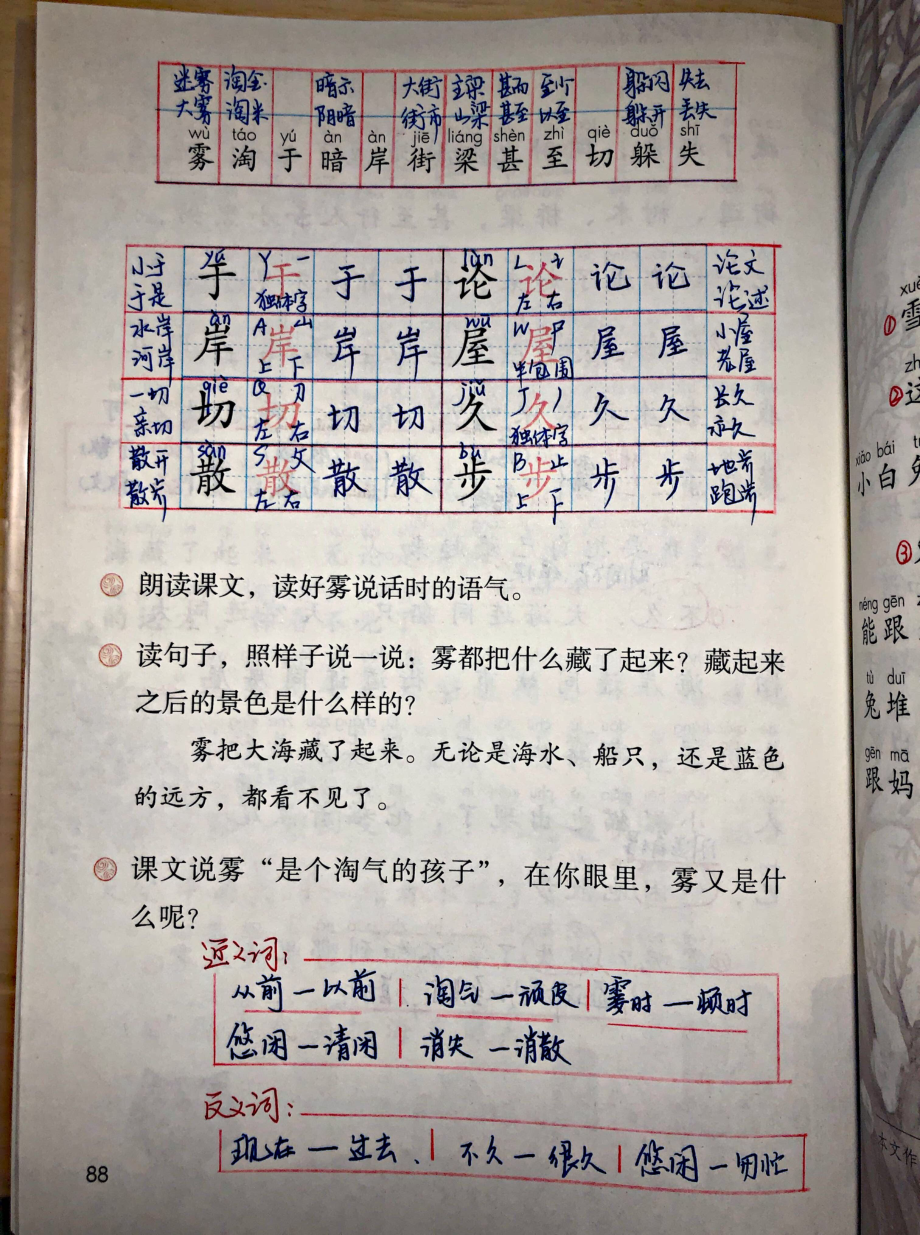 迷雾 淘金 暗示 大街 主梁 甚而 至少 躲闪 失去
大雾 淘米 阴暗 街市 山梁 甚至 以至 躲开 丢失
wù táo yú àn àn jiē liáng shèn zhì qiè duǒ shī
雾 淘 于 暗 岸 街 梁 甚 至 切 躲 失
yú lùn
小于 于 Y 于 一 于 于 论 L 论 讠 论 论 论文
于是 独体字 左 右 论述
àn wū
水岸 岸 A 岸 山 岸 岸 屋 W 屋 尸 屋 屋 小屋
河岸 上 下 半包围 老屋
qiè jiǔ
一切 切 Q 切 刀 切 切 久 J 久 丿 久 久 长久
亲切 左 右 独体字 永久
sàn bù
散开 散 S 散 攵 散 散 步 B 步 止 步 步 地步
散步 左 右 上 下 跑步
朗读课文，读好雾说话时的语气。
读句子，照样子说一说：雾都把什么藏了起来？藏起来
之后的景色是什么样的？
雾把大海藏了起来。无论是海水、船只，还是蓝色
的远方，都看不见了。
课文说雾“是个淘气的孩子”，在你眼里，雾又是什
么呢？
近义词：
从前—以前 淘气—顽皮 霎时—顿时
悠闲—清闲 消失—消散
反义词：
现在—过去、 不久—很久 悠闲—匆忙
88
xuě
① 雪
② 这
xiǎo bái tù
小白兔
③
néng gēn
能跟
tù duī
兔堆
gēn mā
跟妈
本文作